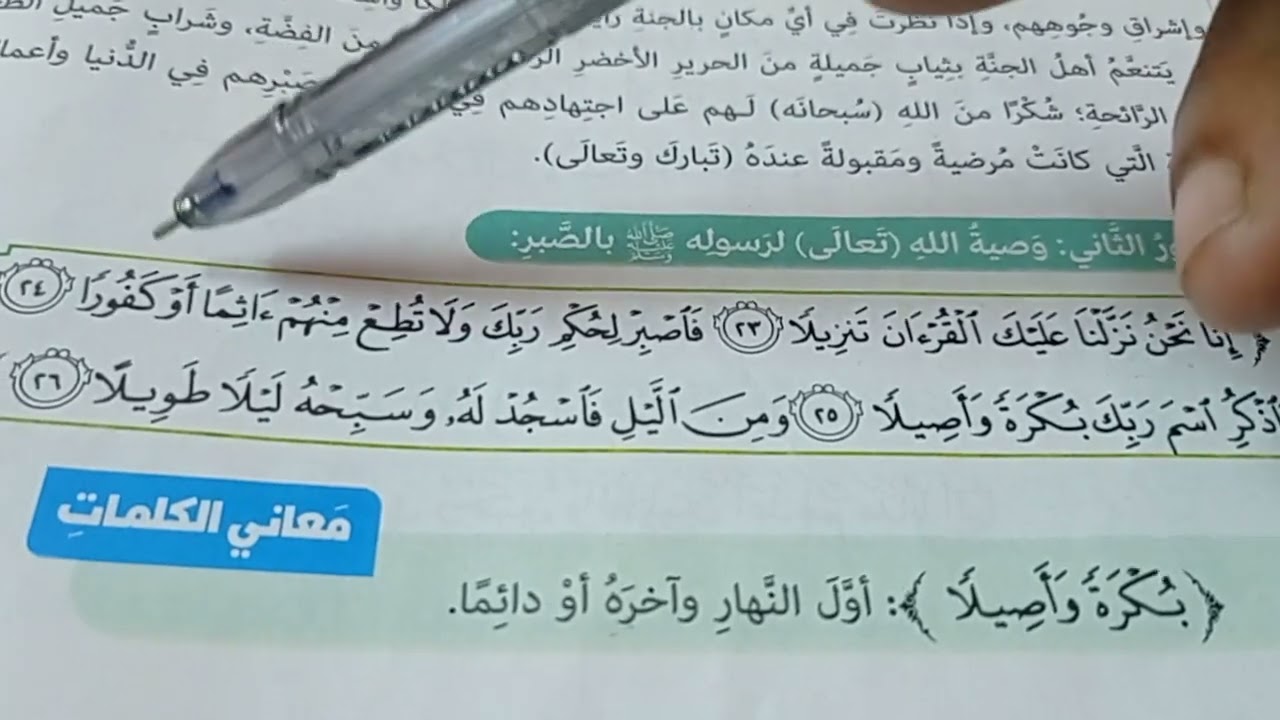 وإشراقِ وجُوههِم، وإذا نظرتَ فِي أيِّ مكانٍ بالجنةِ
يَتنعَّمُ أهلُ الجنَّةِ بِثيابٍ جَميلةٍ منَ الحريرِ الأخضرِ منَ الفِضَّةِ، وشَرابٍ جَميلِ
الرَّائحةِ؛ شُكْرًا منَ اللهِ (سُبحانَه) لَهم عَلى اجتِهادِهم فِي صَبْرِهم فِي الدُّنيا وأعما
الَّتي كانَتْ مُرضيةً ومَقبولةً عندَهُ (تَباركَ وتَعالَى).
الثَّاني: وَصيةُ اللهِ (تَعالَى) لرَسولِه ﷺ بالصَّبرِ:
﴿ إِنَّا نَحْنُ نَزَّلْنَا عَلَيْكَ ٱلْقُرْءَانَ تَنزِيلًا ٢٣ فَٱصْبِرْ لِحُكْمِ رَبِّكَ وَلَا تُطِعْ مِنْهُمْ ءَاثِمًا أَوْ كَفُورًا ٢٤
ٱذْكُرِ ٱسْمَ رَبِّكَ بُكْرَةً وَأَصِيلًا ٢٥ وَمِنَ ٱلَّيْلِ فَٱسْجُدْ لَهُۥ وَسَبِّحْهُ لَيْلًا طَوِيلًا ٢٦
مَعاني الكلماتِ
﴿ بُكْرَةً وَأَصِيلًا ﴾: أوَّلَ النَّهارِ وآخرَهُ أوْ دائِمًا.